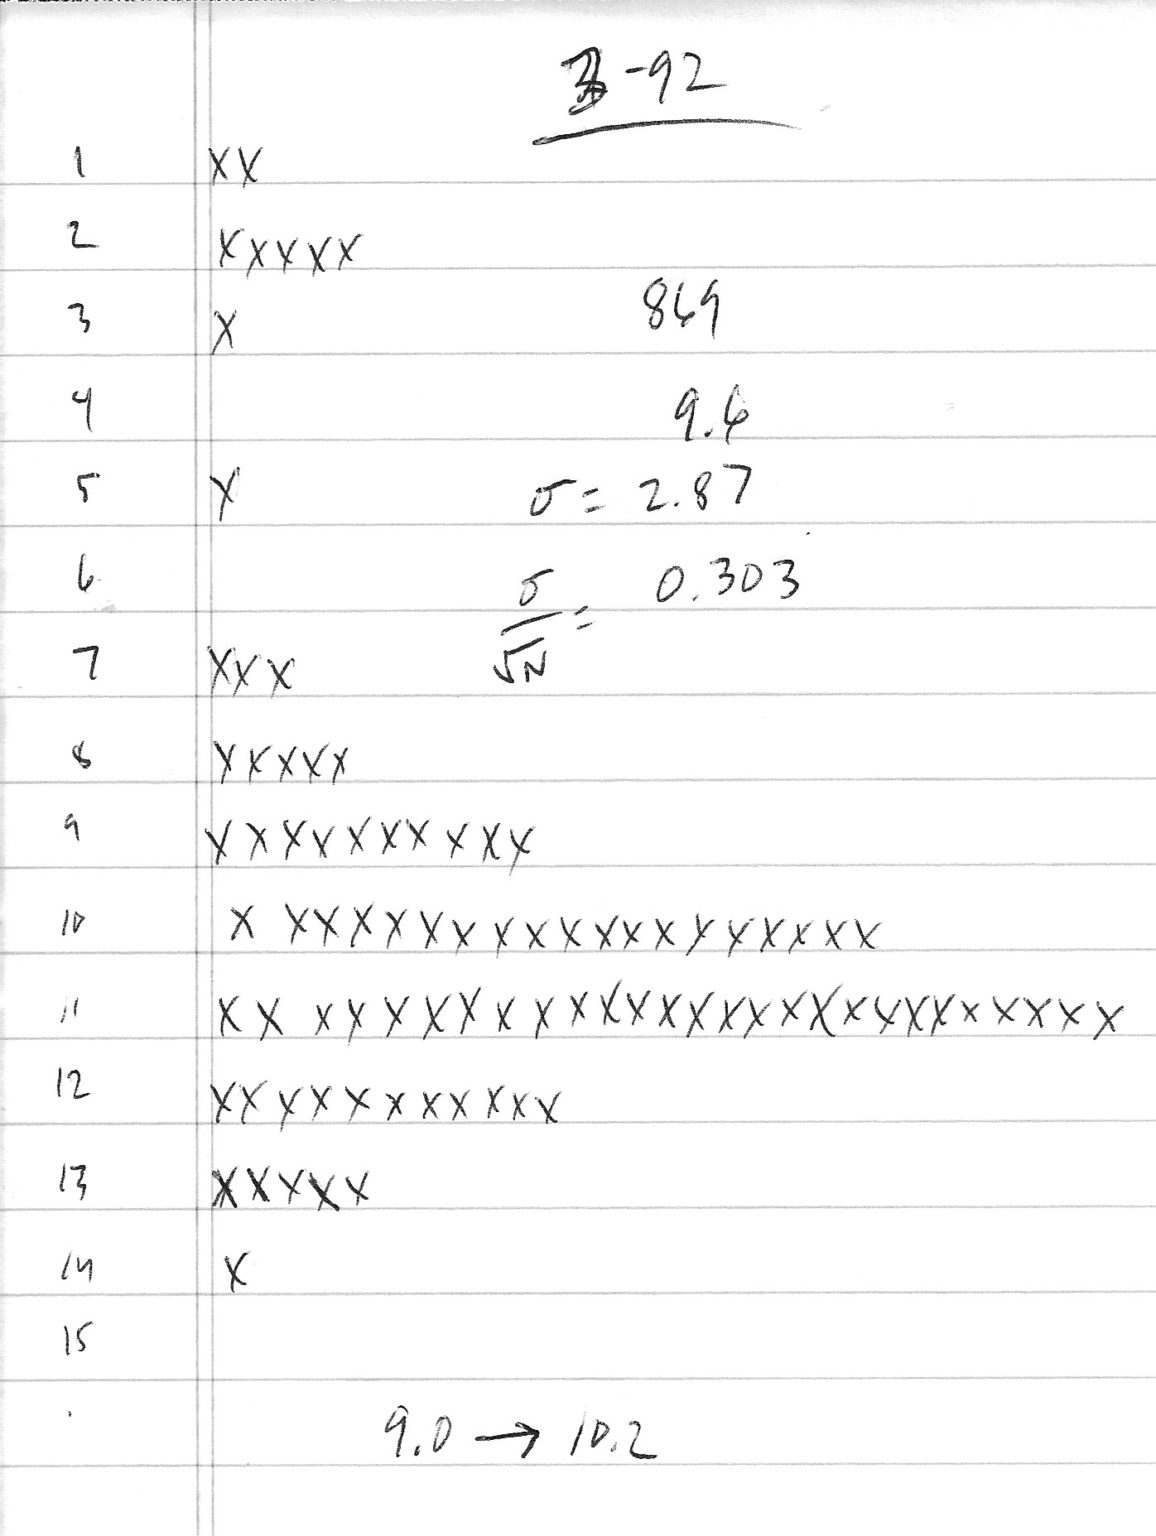 3-92
1 XX
2 XXXXX
3 X 869
4 9.6
5 X σ = 2.87
6 σ/√N = 0.303
7 XXX
8 XXXXX
9 XXXXXXXXXX
10 XXXXXXXXXXXXXXXXXXX
11 XXXXXXXXXXXXXXXXXXXXXXXXXXX
12 XXXXXXXXXXX
13 XXXXX
14 X
15
9.0 → 10.2